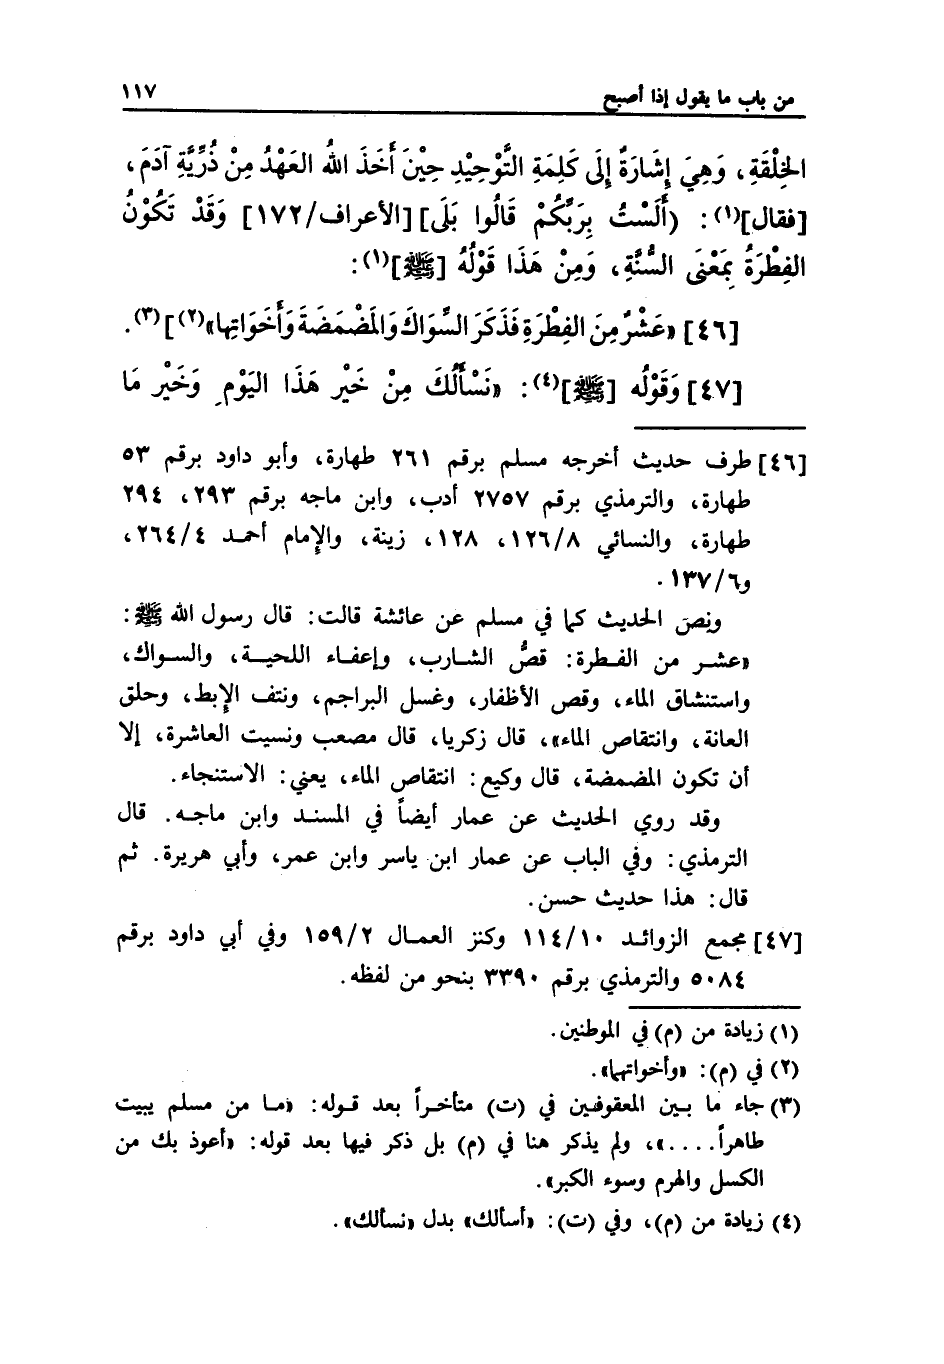 من باب ما يقول إذا أصبح ١١٧
الخِلْقَةِ، وَهِيَ إِشَارَةٌ إِلَى كَلِمَةِ التَّوْحِيْدِ حِيْنَ أَخَذَ اللهُ العَهْدُ مِنْ ذُرِّيَّةِ آدَمَ،
[فقال](١): (أَلَسْتُ بِرَبِّكُمْ قَالُوا بَلَى] [الأعراف/١٧٢] وَقَدْ تَكُوْنُ
الفِطْرَةُ بِمَعْنَى السُّنَّةِ، وَمِنْ هَذَا قَوْلُهُ [ﷺ](١):
[٤٦] «عَشْرٌ مِنَ الفِطْرَةِ فَذَكَرَ السِّوَاكَ وَالمَضْمَضَةَ وَأَخَوَاتِهَا»(٢)](٣).
[٤٧] وَقَوْلُه [ﷺ](٤): «نَسْأَلُكَ مِنْ خَيْرِ هَذَا اليَوْمِ وَخَيْرِ مَا
[٤٦] طرف حديث أخرجه مسلم برقم ٢٦١ طهارة، وأبو داود برقم ٥٣
طهارة، والترمذي برقم ٢٧٥٧ أدب، وابن ماجه برقم ٢٩٣، ٢٩٤
طهارة، والنسائي ١٢٦/٨، ١٢٨، زينة، والإمام أحمد ٢٦٤/٤،
و١٣٧/٦.
ونص الحديث كما في مسلم عن عائشة قالت: قال رسول الله ﷺ:
«عشر من الفطرة: قصُّ الشارب، وإعفاء اللحية، والسواك،
واستنشاق الماء، وقص الأظفار، وغسل البراجم، ونتف الإبط، وحلق
العانة، وانتقاص الماء»، قال زكريا، قال مصعب ونسيت العاشرة، إلا
أن تكون المضمضة، قال وكيع: انتقاص الماء، يعني: الاستنجاء.
وقد روي الحديث عن عمار أيضاً في المسند وابن ماجه. قال
الترمذي: وفي الباب عن عمار ابن ياسر وابن عمر، وأبي هريرة. ثم
قال: هذا حديث حسن.
[٤٧] مجمع الزوائد ١١٤/١٠ وكنز العمال ١٥٩/٢ وفي أبي داود برقم
٥٠٨٤ والترمذي برقم ٣٣٩٠ بنحو من لفظه.
(١) زيادة من (م) في الموطنين.
(٢) في (م): «وأخواتها».
(٣) جاء ما بين المعقوفين في (ت) متأخراً بعد قوله: «ما من مسلم يبيت
طاهراً....»، ولم يذكر هنا في (م) بل ذكر فيها بعد قوله: «أعوذ بك من
الكسل والهرم وسوء الكبر».
(٤) زيادة من (م)، وفي (ت): «أسألك» بدل «نسألك».